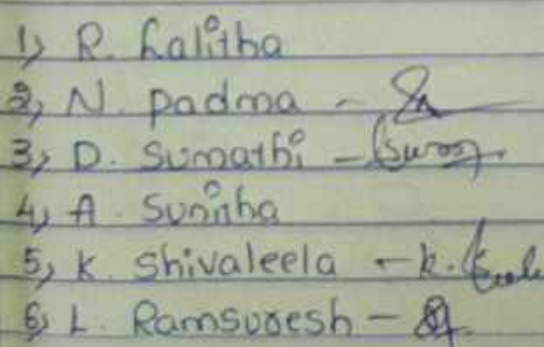 1) R. Lalitha
2) N. padma -
3) D. Sumathi -
4) A. Sunitha
5) K. Shivaleela - k.
6) L. Ramsuresh -